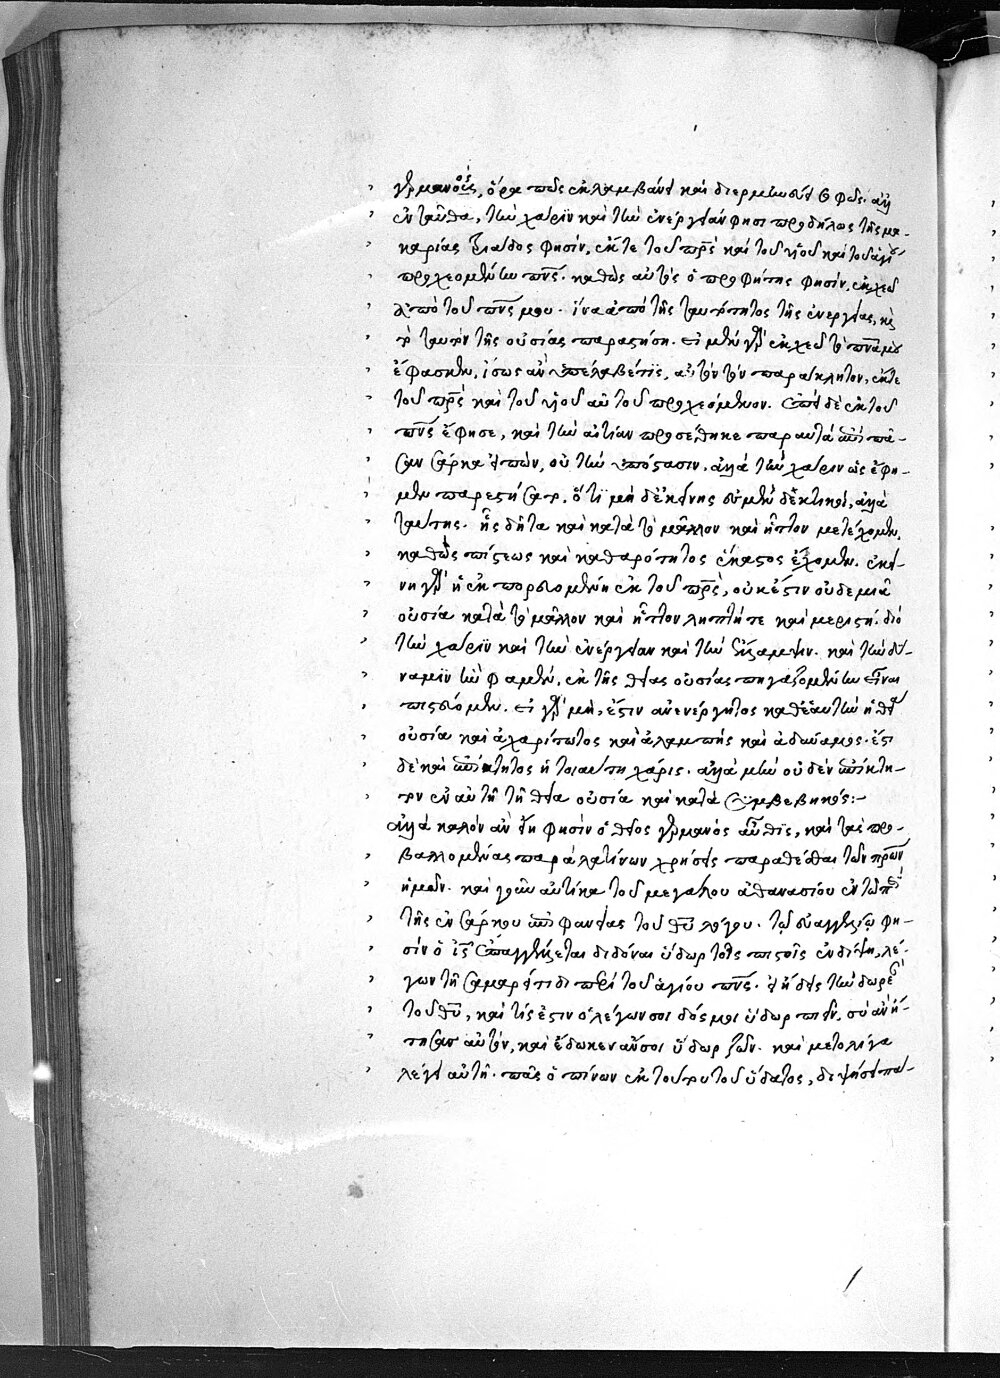 γερμανὸς, ὅρα πῶς ἐκλαμβάνει καὶ διερμηνεύει ὁ φῶς. ἀλλ'
ἐνταῦθα, τὴν χάριν καὶ τὴν ἐνέργειάν φησι προδήλως τῆς μα-
καρίας τριάδος φησὶν, ἔκ τε τοῦ πρς καὶ τοῦ υἱοῦ καὶ τοῦ ἁγίου
προχεομένην πνς. καθὼς αὐτὸς ὁ προφήτης φησὶν. ἐκχεῶ
ἀπὸ τοῦ πνς μου. ἵνα ἀπὸ τῆς ταυτότητος τῆς ἐνεργείας, καὶ
τὸ ταυτὸν τῆς οὐσίας παραστήσῃ. εἰ μὲν γὰρ ἐκχεῶ τὸ πνα μου
ἔφασκεν, ἴσως ἂν ὑπέλαβέ τις, αὐτὸν τὸν παράκλητον, ἔκ τε
τοῦ πρς καὶ τοῦ υἱοῦ αὐτοῦ προχεόμενον. ἐπεὶ δὲ ἐκ τοῦ
πνς ἔφησε, καὶ τὴν αἰτίαν προσέθηκε παραυτὰ ἐπὶ πᾶ-
σαν σάρκα εἰπὼν, οὐ τὴν ὑπόστασιν. ἀλλὰ τὴν χάριν ὡς ἔφη-
μεν παρέστησεν. ὅτι μὴ δ' ἐκείνης ἐσμὲν δεκτικοὶ, ἀλλὰ
ταύτης. ἧς δῆτα καὶ κατὰ τὸ μᾶλλον καὶ ἧττον μετέχομεν,
καθὼς πίστεως καὶ καθαρότητος ἕκαστος ἔχομεν. ἐκεί-
νη γὰρ ἡ ἐκπορευομένη ἐκ τοῦ πρς, οὐκ ἔστιν οὐδεμία
οὐσία κατὰ τὸ μᾶλλον καὶ ἧττον ληπτή τε καὶ μεριστή. διὸ
τὴν χάριν καὶ τὴν ἐνέργειαν καὶ τὴν ἔλλαμψιν. καὶ τὴν δύ-
ναμιν ἣν φαμὲν, ἐκ τῆς θείας οὐσίας πηγαζομένην εἶναι
πιστεύομεν. εἰ γὰρ μὴ, ἔστιν ἀνενέργητος καθ' ἑαυτὴν ἡ θεία
οὐσία καὶ ἀχαρίτωτος καὶ ἀλαμπὴς καὶ ἀδύναμος. ἔστι
δὲ καὶ ἐπίκτητος ἡ τοιαύτη χάρις. ἀλλὰ μὴν οὐδὲν ἐπίκτη-
τον ἐν αὐτῇ τῇ θείᾳ οὐσίᾳ καὶ κατὰ συμβεβηκός:-
Ἀλλὰ καλὸν ἂν εἴη φησὶν ὁ θεῖος γερμανὸς αὖθις, καὶ τὰς προ-
βαλλομένας παρὰ λατίνων χρήσεις παραθέσθαι τῶν πρων
ἡμῶν. καὶ γοῦν αὐτίκα τοῦ μεγάλου ἀθανασίου ἐν τῷ περὶ
τῆς ἐνσάρκου ἐπιφανείας τοῦ θυ λόγου. τῷ εὐαγγελίῳ φη-
σὶν ὁ ις ἐπαγγέλλεται διδόναι ὕδωρ τοῖς πιστοῖς ἐνδίψει, λέ-
γων τῇ σαμαρείτιδι περὶ τοῦ ἁγίου πνς. εἰ ᾔδεις τὴν δωρεὰν
τοῦ θυ, καὶ τίς ἐστιν ὁ λέγων σοι δός μοι ὕδωρ πιεῖν, σὺ ἂν ᾔ-
τησας αὐτὸν, καὶ ἔδωκεν ἄν σοι ὕδωρ ζῶν. καὶ μετ' ὀλίγα
λέγει αὐτῇ. πᾶς ὁ πίνων ἐκ τοῦ τούτου ὕδατος, διψήσει πά-